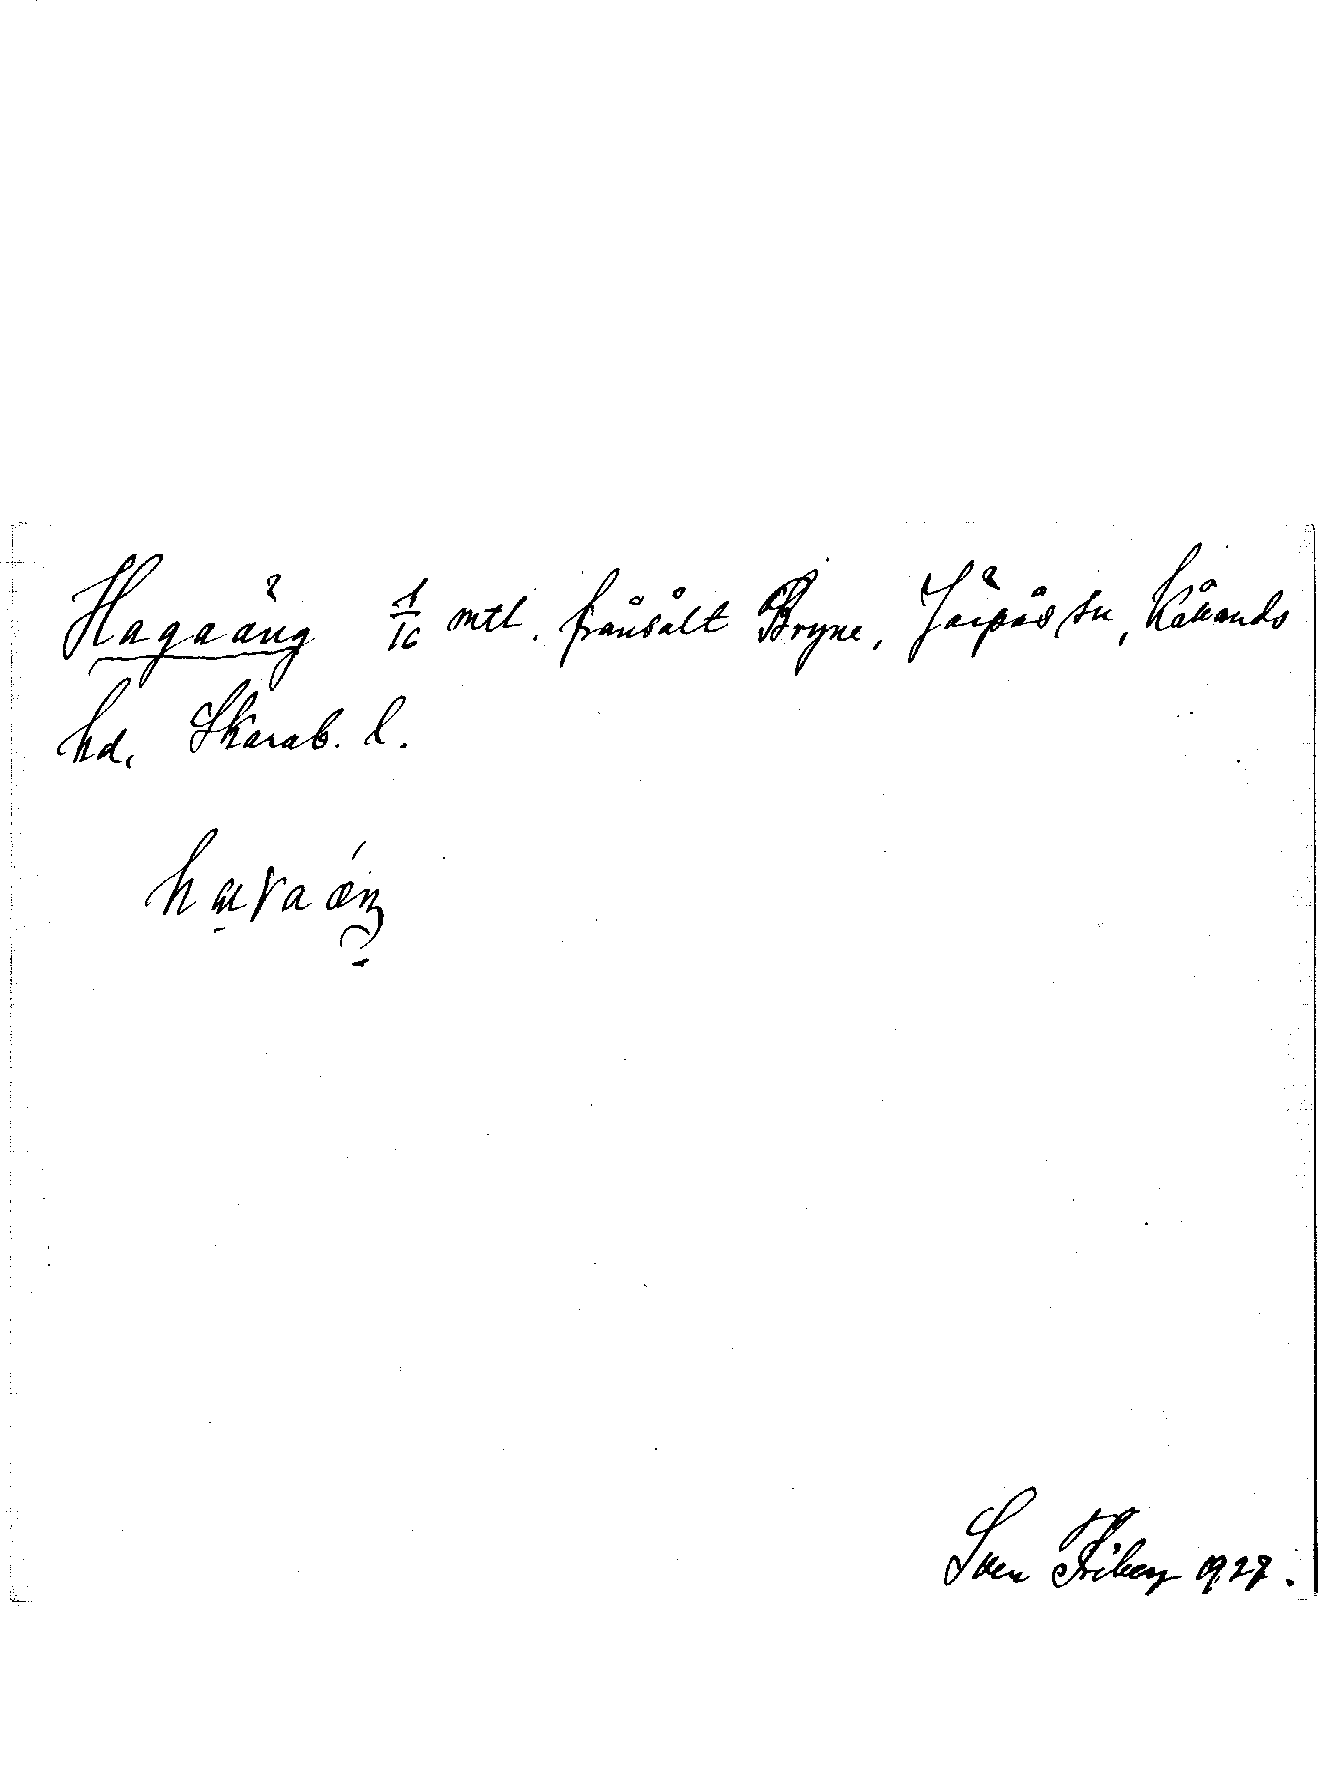 Hagaäng 1/16 mtl. frånsålt Bryne, Järpås sn, Kållands
hd. Skarab. l.
Sven Friberg 1927.